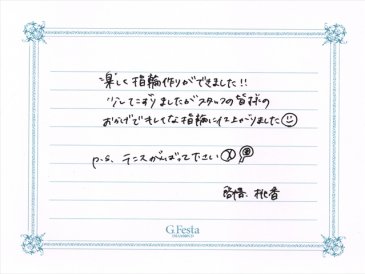 楽しく指輪作りができました!!
少してこずりましたがスタッフの皆様の
おかげでキレイな指輪に仕上がりました
P.S. テニスがんばって下さい
桃香
G.Festa